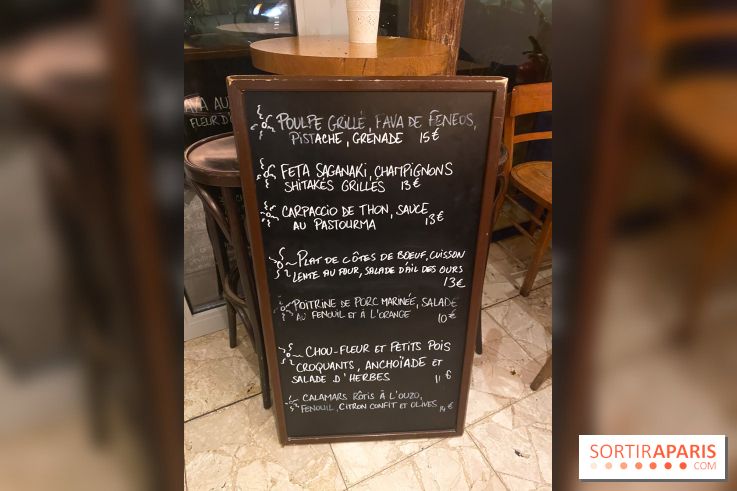 POULPE GRILLÉ, FAVA DE FENEOS,
PISTACHE, GRENADE 15€
FETA SAGANAKI, CHAMPIGNONS
SHITAKÉS GRILLÉS 13€
CARPACCIO DE THON, SAUCE
AU PASTOURMA 13€
PLAT DE CÔTES DE BOEUF, CUISSON
LENTE AU FOUR, SALADE D'AIL DES OURS
13€
POITRINE DE PORC MARINÉE, SALADE
AU FENOUIL ET À L'ORANGE 10€
CHOU-FLEUR ET PETITS POIS
CROQUANTS, ANCHOÏADE ET
SALADE D'HERBES 11€
CALAMARS RÔTIS À L'OUZO,
FENOUIL, CITRON CONFIT ET OLIVES 14€
AVA AU
FLEUR D'
SORTIRAPARIS
.COM